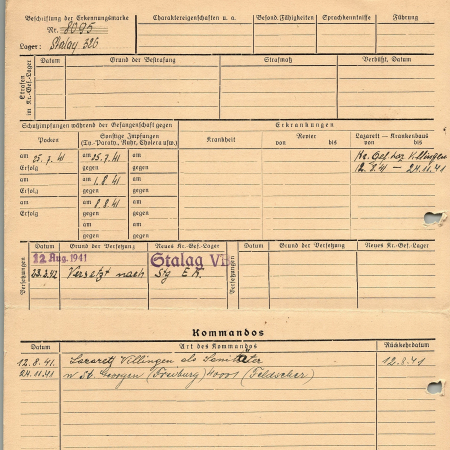 Beschriftung der Erkennungsmarke
Nr. 8095
Lager: Stalag 326
Charaktereigenschaften u. a.
Besond. Fähigkeiten
Sprachkenntnisse
Führung
Strafen im Kr.-Gef.-Lager
Datum
Grund der Bestrafung
Strafmaß
Verbüßt, Datum
Schutzimpfungen während der Gefangenschaft gegen
Erkrankungen
Pocken
Sonstige Impfungen
(Ty.-Paraty., Ruhr, Cholera usw.)
Krankheit
Revier
von bis
Lazarett — Krankenhaus
von bis
am 25.7.41 am 25.7.41 am
Erfolg gegen gegen
am am 1.8.41 am
Erfolg gegen gegen
am am 8.8.41 am
Erfolg gegen gegen
am am
gegen gegen
Villingen
12.8.41 — 24.11.41
Versetzungen
Datum Grund der Versetzung Neues Kr.-Gef.-Lager
12. Aug. 1941 Stalag VB
23.3.42 Versetzt nach
Versetzungen
Datum Grund der Versetzung Neues Kr.-Gef.-Lager
Kommandos
Datum Art des Kommandos Rückkehrdatum
12.8.41. Lazarett Villingen als Sanitäter 12.8.41
24.11.41 St. Georgen (Freiburg) 4001 (Feldscher)